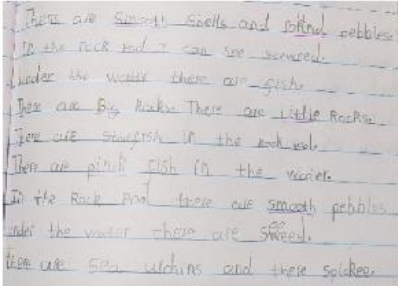 There are smooth shells and pebbles
In the rock pool I can see seaweed.
Under the water there are fish.
There are Big Rocks. There are Little Rocks.
There are starfish in the rock pool.
There are pink fish in the water.
In the Rock Pool there are smooth pebbles
under the water there are
there are sea urchins and there spickee.